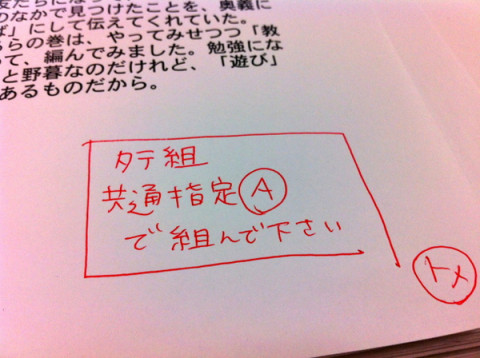 友だちになった
のなかで見つけたことを、奥義に
ば」にして伝えてくれていた。
らの巻は、やってみせつつ「教
って、編んでみました。勉強にな
と野暮なのだけれど、「遊び」
あるものだから。
タテ組
共通指定Ⓐ
で組んで下さい
トメ